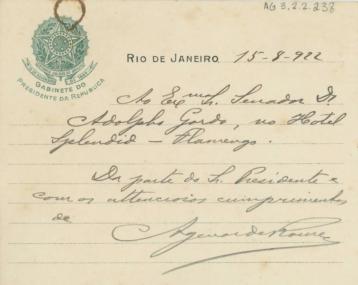 AG 3.2.2.238
GABINETE DO
PRESIDENTE DA REPUBLICA
RIO DE JANEIRO, 15-8-922
Ao Exmo Sr. Senador Dr
Adolpho Gordo, no Hotel
Splendid - Flamengo.
Da parte do Sr. Presidente e
com os attenciosos cumprimentos
de
Agenor de Roure